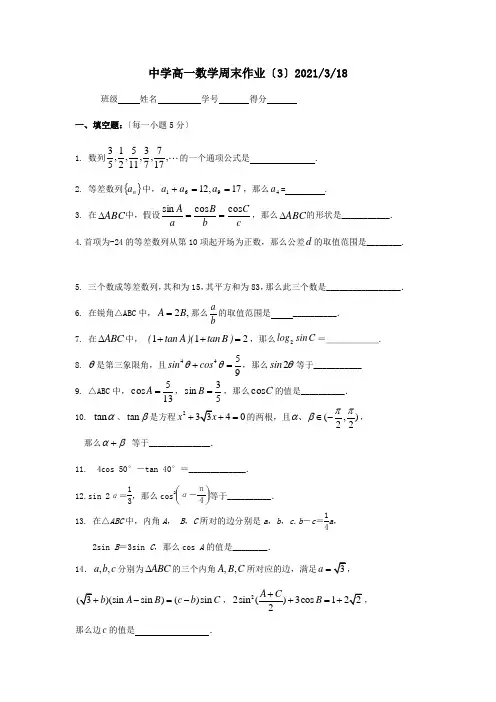 中学高一数学周末作业〔3〕2021/3/18
班级____ 姓名________ 学号____ 得分______
一、填空题:〔每一小题5分〕
1. 数列 3/5, 1/2, 5/11, 3/7, 7/17, ⋯ 的一个通项公式是 .
2. 等差数列{aₙ}中, a₁ + a₆ = 12, a₉ = 17 ,那么a₄= .
3. 在ΔABC中,假设 sin A/a = cos B/b = cos C/c ,那么ΔABC的形状是___________.
4.首项为-24的等差数列从第10项起开场为正数,那么公差d的取值范围是________.
5. 三个数成等差数列,其和为15,其平方和为83,那么此三个数是_________________.
6. 在锐角△ABC中, A = 2B, 那么a/b的取值范围是 __________.
7. 在ΔABC中, (1 + tan A)(1 + tan B) = 2 ,那么log₂ sin C =___________.
8. θ是第三象限角,且sin⁴θ + cos⁴θ = 5/9 ,那么sin 2θ等于___________
9. △ABC中, cos A = 5/13 , sin B = 3/5 ,那么cos C的值是__________.
10. tan α、tan β是方程x² + 3√3x + 4 = 0的两根,且α、β∈(−π/2, π/2),
那么α + β 等于______________.
11. 4cos 50°-tan 40°=_____________.
12.sin 2α=1/3,那么cos²(α-π/4)等于__________.
13. 在△ABC中,内角A, B,C所对的边分别是a,b,c.b-c=1/4a,
2sin B=3sin C,那么cos A的值是________.
14. a,b,c分别为ΔABC的三个内角A,B,C所对应的边,满足a = √3,
(√3 + b)(sin A − sin B) = (c − b)sin C , 2sin²((A + C)/2) + 3cos B = 1 + 2√2 ,
那么边c的值是 .